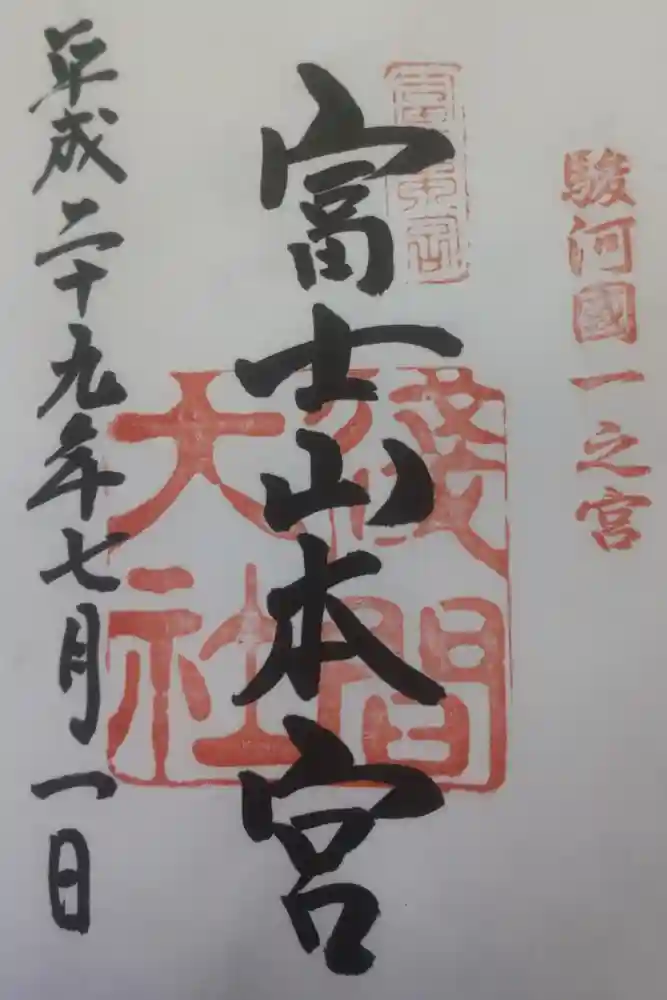 駿河國一之宮
富士山本宮
淺間
大社
平成二十九年七月一日